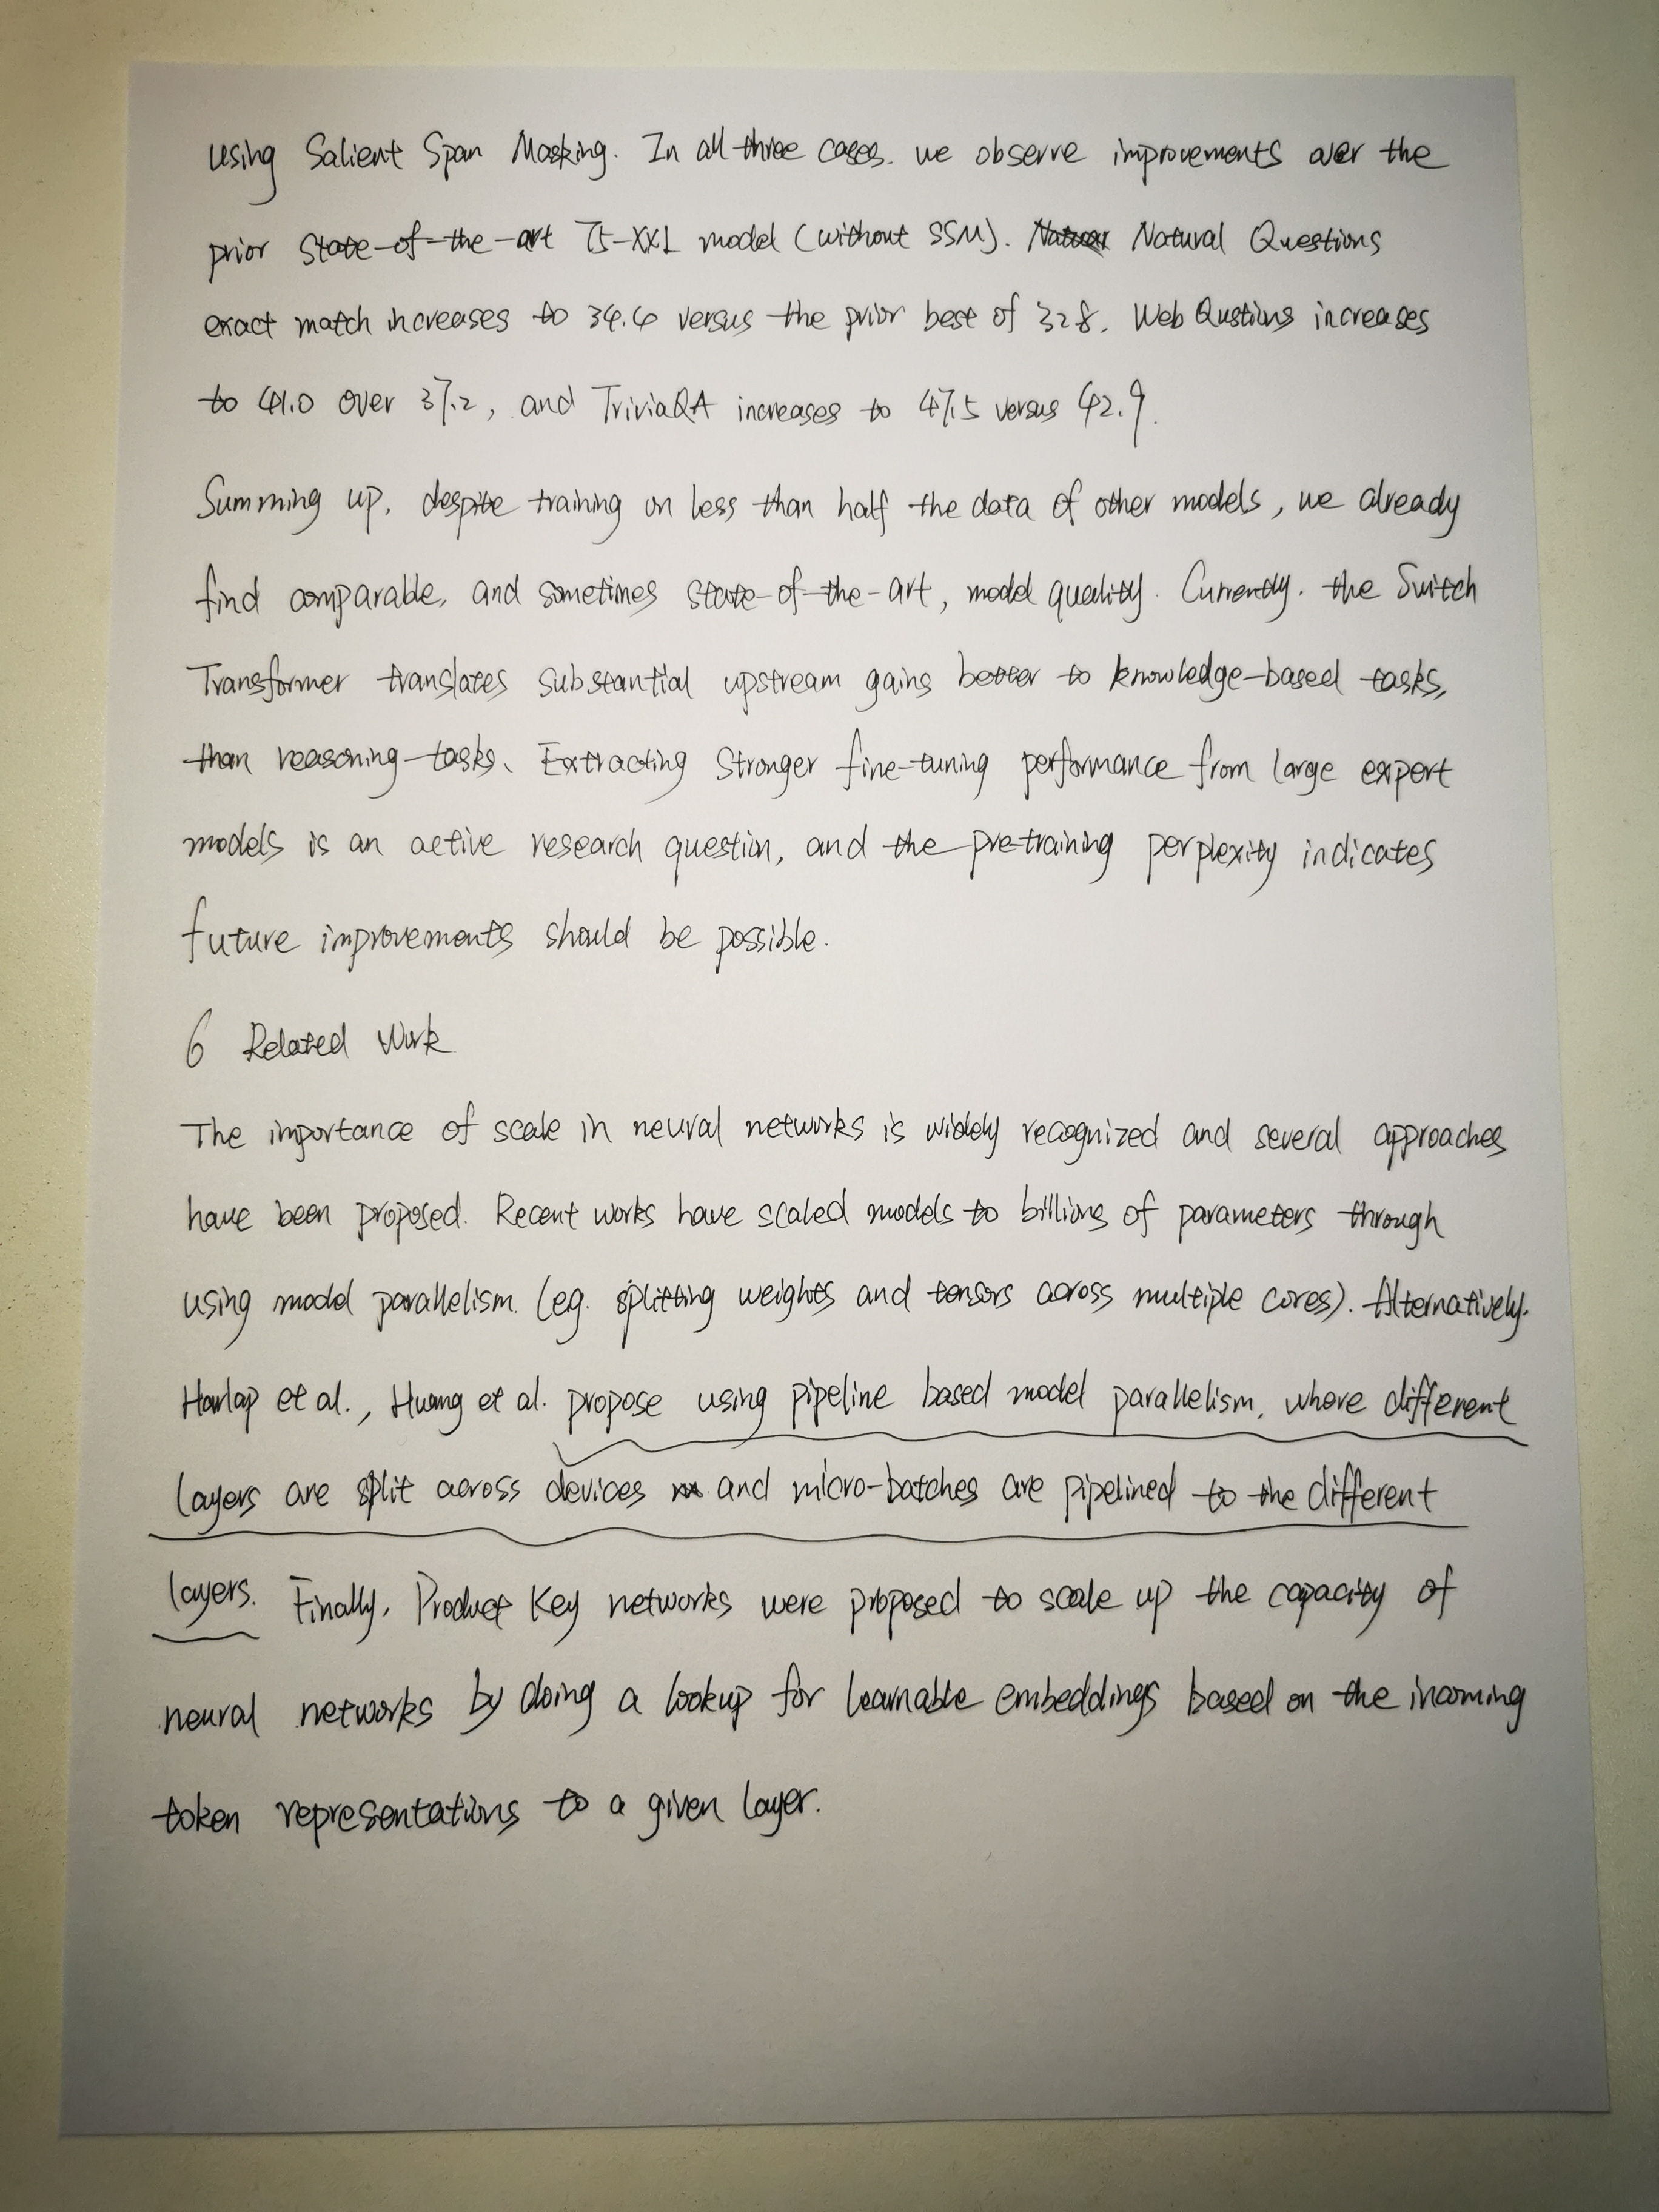 using Salient Span Masking. In all three cases. we observe improvements over the
prior State-of-the-art T5-XXL model (without SSM). Natural Questions
exact match increases to 34.4 versus the prior best of 32.8. Web Qustions increases
to 41.0 over 37.2, and TriviaQA increases to 47.5 versus 42.9.
Summing up, despite training on less than half the data of other models, we already
find comparable, and sometimes state-of-the-art, model quality. Currently. the Switch
Transformer translates substantial upstream gains better to knowledge-based tasks,
than reasoning-tasks. Extracting Stronger fine-tuning performance from large expert
models is an active research question, and the pre-training perplexity indicates
future improvements should be possible.
6 Related Work
The importance of scale in neural networks is widely recognized and several approaches
have been proposed. Recent works have scaled models to billions of parameters through
using model parallelism. (eg. splitting weights and tensors across multiple cores). Alternatively.
Harlap et al., Huang et al. propose using pipeline based model parallelism, where different
layers are split across devices and micro-batches are pipelined to the different
layers. Finally, Product Key networks were proposed to scale up the capacity of
neural networks by doing a lookup for learnable embeddings based on the incoming
token representations to a given layer.